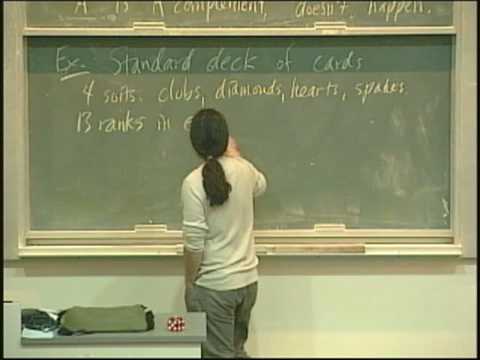 A is A complement, doesn't happen.
Ex. Standard deck of cards
4 suits: clubs, diamonds, hearts, spades.
13 ranks in e